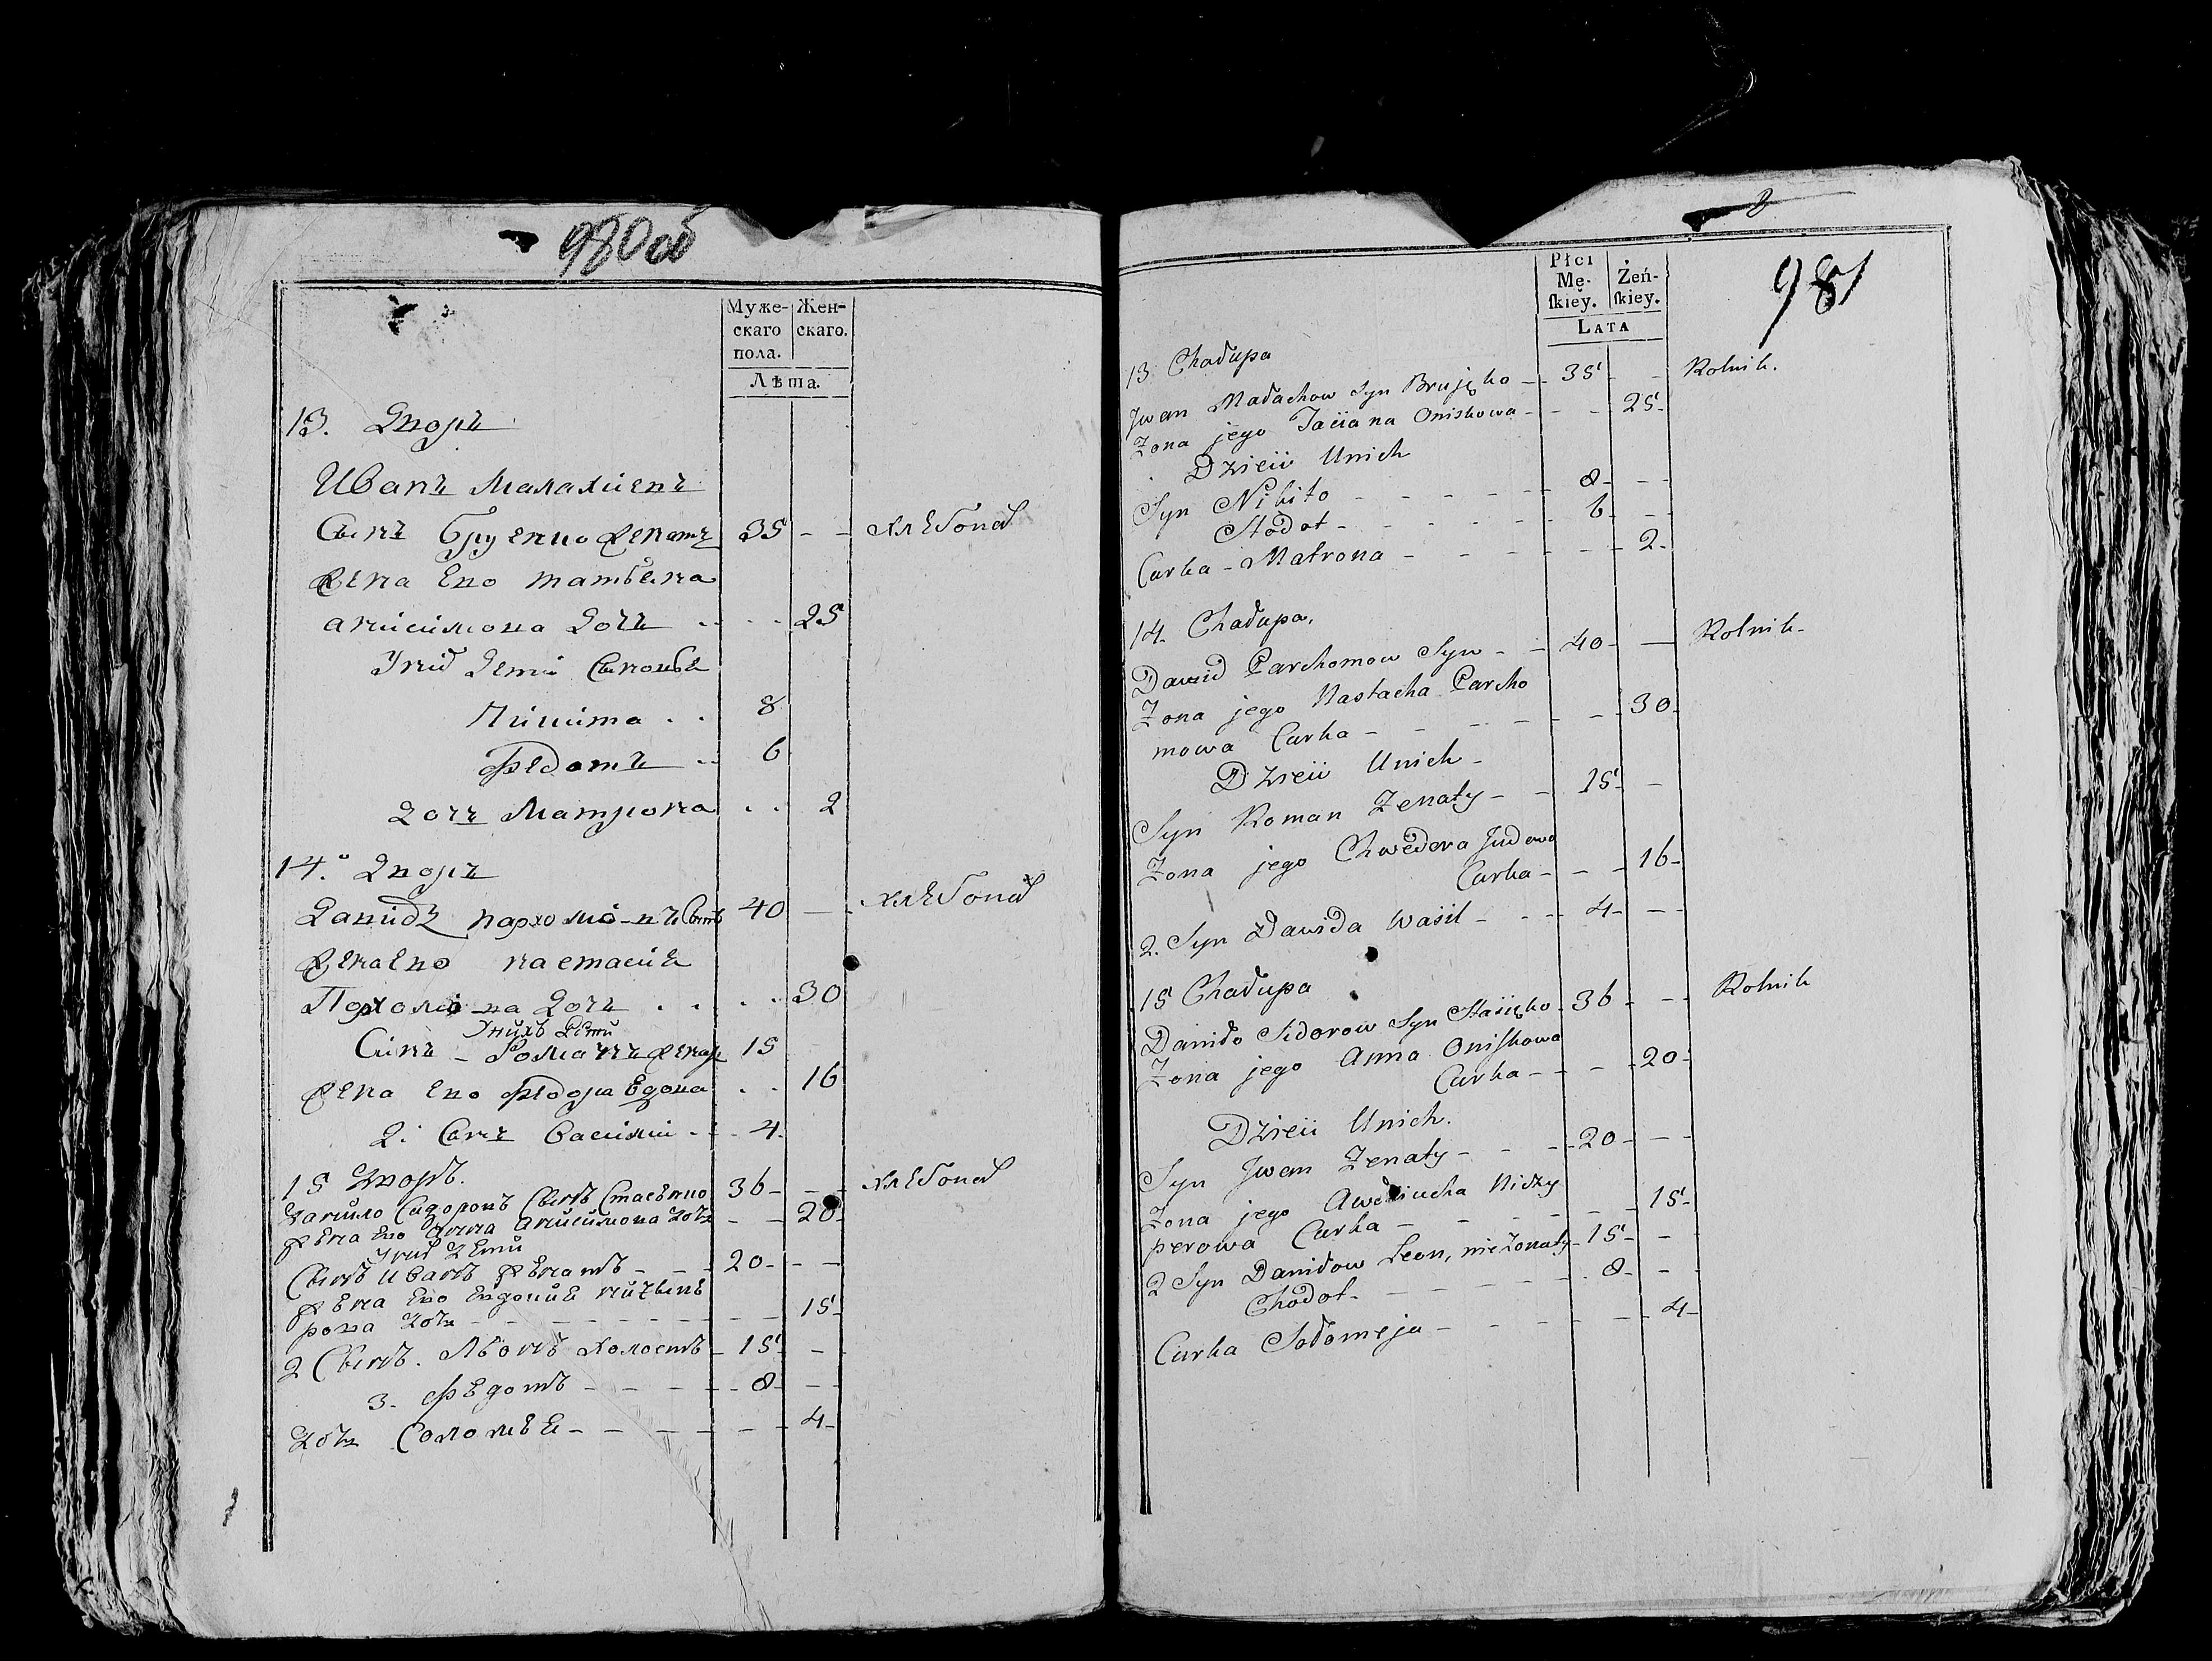 980 об
Муже-
скаго
пола.
Жен-
скаго.
Лѣта.
13. Дворъ
Иванъ Малахиевъ
Сынъ Бруевко женатъ 35 - - хлебопа
Жена Ево татьѣна
анисимова Дочь . . . . 25
Уних дети Сыновья
Никита . . 8
Федотъ . . 6
Дочь Матрона . . 2
14. Дворъ
Давидъ пархомовъ Сынъ 40 — - хлебопа
Жена Ево настасия
Пархомова Дочь . . . . 30
Унихъ Дети
Синъ - Романъ женат 15
Жена Ево Федора Едова . . 16
2. Синъ Василий . - . 4.
15 Дворъ.
Данило Сидоровъ Сынъ Стасѣнко 36 - - - хлебопа
Жена Ево Анна Анисимова дочь - - 20
Уних дети
Сынъ Иванъ женатъ - - - 20 - - -
Жена Ево Евдокия ничьпѣ
рова дочь - - - - - - - - 15
2 Сынъ. Лѣонъ холостъ - 15 - -
3. Федотъ - - - - - 8 - - -
дочь Соломея - - - - - - 4 -
981
Płci
Mę-
ſkiey.
Żeń-
ſkiey.
LATA
13. Chałupa
Jwan Małachow Syn Brujęko - - 35 - - Rolnik.
Zona jego Taciana Oniskowa - - - 25 -
Dzieii Unich
Syn Nikito - - - - - 8 - - -
Chodot - - - - - - 6 - -
Curka - Matrona - - - - - - 2 -
14. Chałupa.
Dawid Parchomow Syn - - 40 - — Rolnik -
Zona jego Nastacha Parcho
mowa Curka - - - - - - 30 -
Dzieii Unich -
Syn Roman Zenaty - - 15 - -
Zona jego Chwedora Judowa
Curka - - - 16 -
2. Syn Dawida Wasil - - - 4 - - -
15 Chałupa
Daniło Sidorow Syn Stasięko - 36 - - - Rolnik
Zona jego Anna Oniſkowa
Curka - - - 20 -
Dzieii Unich.
Syn Jwan Zenaty - - - - 20 - - -
Zona jego Awdziucha Niczy
perowa Curka - - - - - - 15 -
2 Syn Daniłow Leon, nieżonaty - 15 - -
Chodot - - - - - - 8 - - -
Curka Sołomeja - - - - - - 4 -